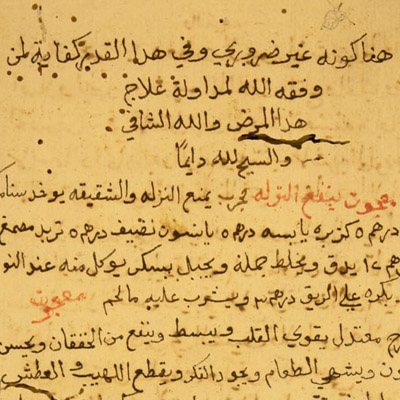 هنا كونه غير ضروري وفي هدا القدر كفاية لمن
وفقه الله لمداولة علاج
هدا المرض والله الشافي
والسبح لله دايمًا
معجون ينفع النزله مجرب يمنع النزله والشقيقه يوخد سنامكي
درهم ٥ كزبره يابسه درهم ٥ يانسون نضيف درهم ٥ تربد مصمغ
درهم ١٢ يدق ويخلط جملة ويجبل بسكر يوكل منه عند النوم
بكره على الريق درهم ٣ ويشرب عليه ما لحم معجون
معتدل يقوي القلب ويبسط وينفع من الخفقان ويحسن
ويشهي الطعام ويجود الفكر ويقطع اللهيب والعطش